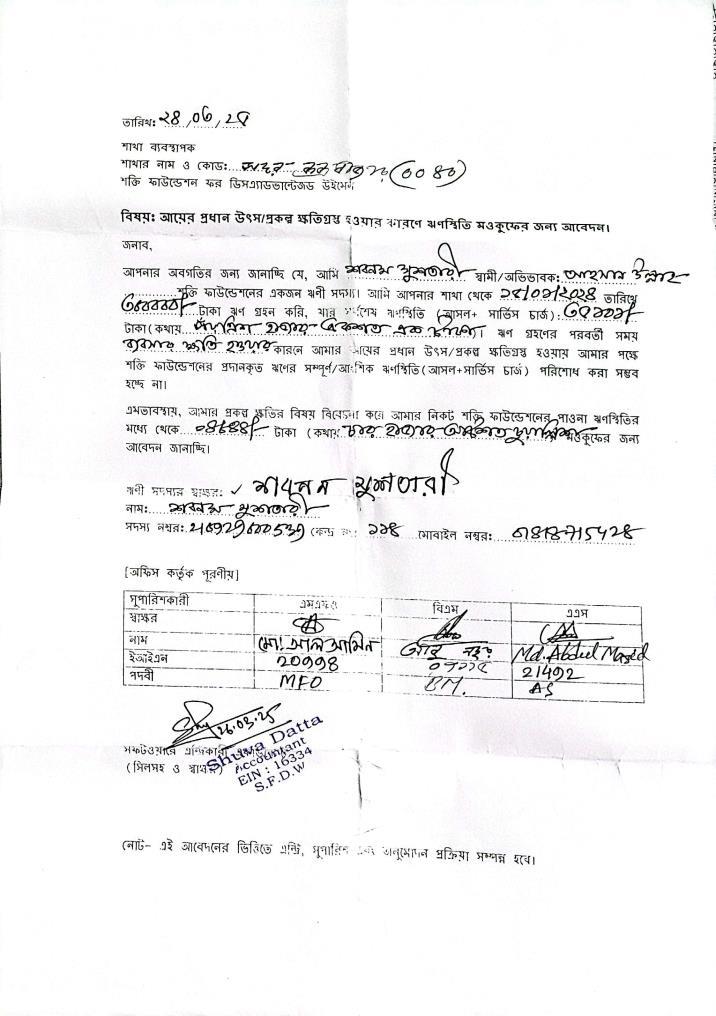 তারিখ: ২৪,০৬,২৫
শাখা ব্যবস্থাপক
শাখার নাম ও কোড: (০০৪০)
শক্তি ফাউন্ডেশন ফর ডিসএ্যাডভান্টেজড উইমেন
বিষয়: আয়ের প্রধান উৎস/প্রকল্প ক্ষতিগ্রস্থ হওয়ার কারণে ঋণস্থিতি মওকুফের জন্য আবেদন।
জনাব,
আপনার অবগতির জন্য জানাচ্ছি যে, আমি শবনম মুশতারী স্বামী/অভিভাবক: আহসান উল্লাহ
শক্তি ফাউন্ডেশনের একজন ঋণী সদস্য। আমি আপনার শাখা থেকে তারিখে
টাকা ঋণ গ্রহন করি, যার সর্বশেষ ঋণস্থিতি (আসল+ সার্ভিস চার্জ):
টাকা(কথায় হাজার একশত এক টাকা)। ঋণ গ্রহণের পরবর্তী সময়
ব্যবসার ক্ষতি হওয়ার কারনে আমার আয়ের প্রধান উৎস/প্রকল্প ক্ষতিগ্রস্থ হওয়ায় আমার পক্ষে
শক্তি ফাউন্ডেশনের প্রদানকৃত ঋণের সম্পূর্ণ/আংশিক ঋণস্থিতি(আসল+সার্ভিস চার্জ) পরিশোধ করা সম্ভব
হচ্ছে না।
এমতাবস্থায়, আমার প্রকল্প ক্ষতির বিষয় বিবেচনা করে আমার নিকট শক্তি ফাউন্ডেশনের পাওনা ঋণস্থিতির
মধ্যে থেকে টাকা (কথায় চার হাজার মওকুফের জন্য
আবেদন জানাচ্ছি।
ঋণী সদস্যর স্বাক্ষর: শাবনম মুশতারী
নাম: শবনম মুশতারী
সদস্য নম্বর: কেন্দ্র নং: ১১৪ মোবাইল নম্বর:
[অফিস কর্তৃক পূরণীয়]
সুপারিশকারী এমএফও বিএম এএস
স্বাক্ষর
নাম মো: আল আমিন Md. Abdul Mased
ইআইএন 20998 21492
পদবী MFO BM. AS
26.03.25
সফটওয়ারে এন্ট্রিকারী
(সিলসহ ও স্বাক্ষর)
Shuva Datta
Accountant
EIN : 16334
S.F.D.W
নোট- এই আবেদনের ভিত্তিতে এন্ট্রি, সুপারিশ এবং অনুমোদন প্রক্রিয়া সম্পন্ন হবে।